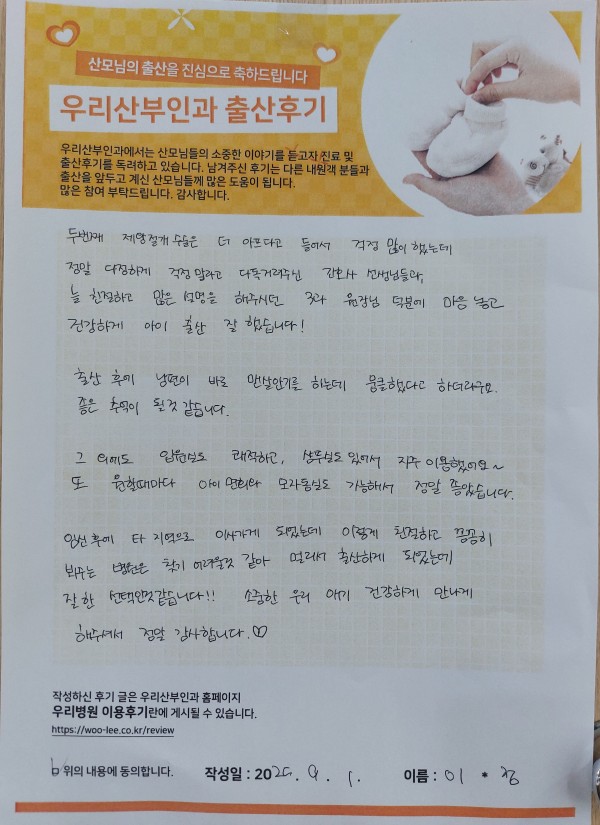 산모님의 출산을 진심으로 축하드립니다
우리산부인과 출산후기
우리산부인과에서는 산모님들의 소중한 이야기를 듣고자 진료 및
출산후기를 독려하고 있습니다. 남겨주신 후기는 다른 내원객 분들과
출산을 앞두고 계신 산모님들께 많은 도움이 됩니다.
많은 참여 부탁드립니다. 감사합니다.
두번째 제왕절개 수술은 더 아프다고 들어서 걱정 많이 했는데
정말 다정하게 걱정 말라고 다독거려주신 간호사 선생님들과,
늘 친절하고 많은 설명을 해주시던 3과 원장님 덕분에 마음 놓고
건강하게 아이 출산 잘 했습니다!
출산 후에 남편이 바로 맨살안기를 하는데 뭉클했다고 하더라구요.
좋은 추억이 될것 같습니다.
그 외에도 입원실도 쾌적하고, 샴푸실도 있어서 자주 이용했어요~
또 원할때마다 아이 면회와 모자동실도 가능해서 정말 좋았습니다.
임신 후에 타 지역으로 이사가게 되었는데 이렇게 친절하고 꼼꼼히
봐주는 병원은 찾기 어려울것 같아 멀리서 출산하게 되었는데
잘한 선택인것같습니다!! 소중한 우리 아기 건강하게 만나게
해주셔서 정말 감사합니다.♡
작성하신 후기 글은 우리산부인과 홈페이지
우리병원 이용후기란에 게시될 수 있습니다.
https://woo-lee.co.kr/review
위의 내용에 동의합니다. 작성일 : 2025. 9. 1. 이름 : 이 *